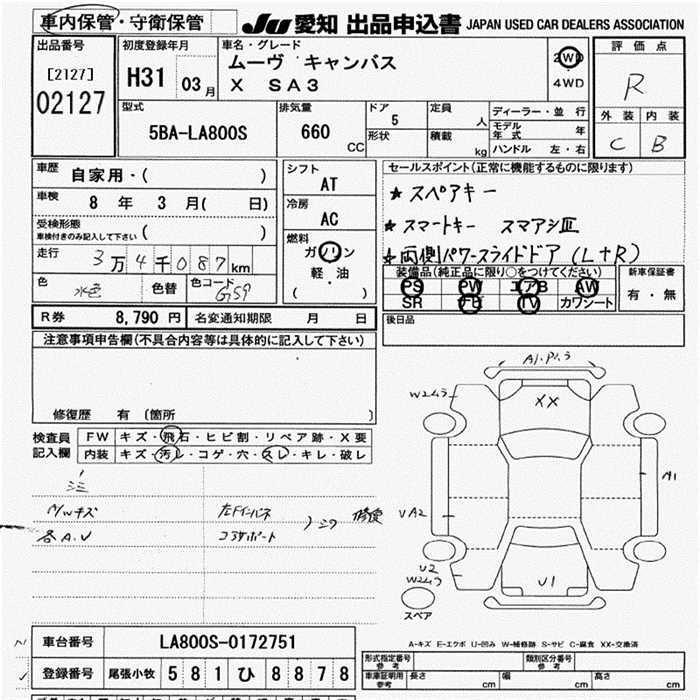 車内保管・守衛保管
JU 愛知 出品申込書 JAPAN USED CAR DEALERS ASSOCIATION
出品番号
[2127]
02127
初度登録年月
H31 03月
車名・グレード
ムーヴ キャンバス
X SA3
2WD
4WD
評価点
R
外装 内装
C B
型式
5BA-LA800S
排気量
660
CC
ドア
5
形状
定員
人
積載
kg
ディーラー・並行
モデル年式 年
ハンドル 左・右
車歴
自家用・( )
車検
8年 3月( 日)
受検形態
車検付きのみ記入して下さい ( )
走行
3万4千087km
色
水色
色替
色コード
G59
シフト
AT
冷房
AC
燃料
ガソリン
軽・油
( )
セールスポイント(正常に機能するものに限ります)
★ スペアキー
★ スマートキー スマアシⅢ
★ 両側パワースライドドア (L+R)
装備品(純正品に限り○をつけてください)
PS PW エアB AW
SR TV カワシート
新車保証書
有・無
後日品
R券 8,790円 名変通知期限 月 日
注意事項申告欄(不具合内容等は具体的に記入して下さい)
修復歴 有 〔箇所 〕
検査員記入欄
FW キズ・飛石・ヒビ割・リペア跡・X要
内装 キズ・汚レ・コゲ・穴・スレ・キレ・破レ
各A.U
コアサポート
修復
A1.P1.3
W2ムラ
XX
A1
UA2
U2
W2ムラ
U1
スペア
A-キズ E-エクボ U-凹み W-補修跡 S-サビ C-腐食 XX-交換済
車台番号 LA800S-0172751
登録番号 尾張小牧 581 ひ 8878
形式指定番号 参考
類別区分番号 参考
車庫証明用参考 長さ cm 幅 cm 高さ cm